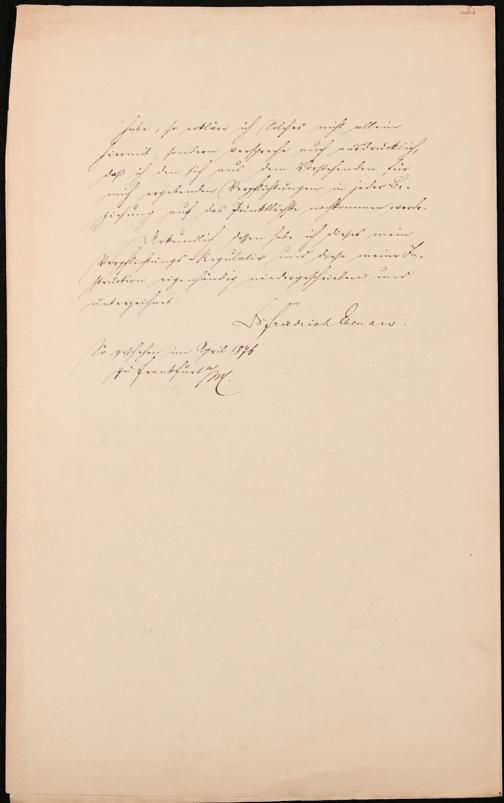 habe, so erkläre ich Solches nicht allein
hiermit, sondern verspreche auch ausdrücklich,
daß ich den sich aus dem Vorstehenden für
mich ergebenden Verpflichtungen in jeder Be-
ziehung auf das Pünktlichste nachkommen werde.
Urkundlich dessen habe ich dieses mein
Verpflichtungs-Regulativ und diese meine In-
struction eigenhändig niedergeschrieben und
unterzeichnet.
Dr Friedrich Ebenau.
So geschehen im April 1876
zu Frankfurt a/M.